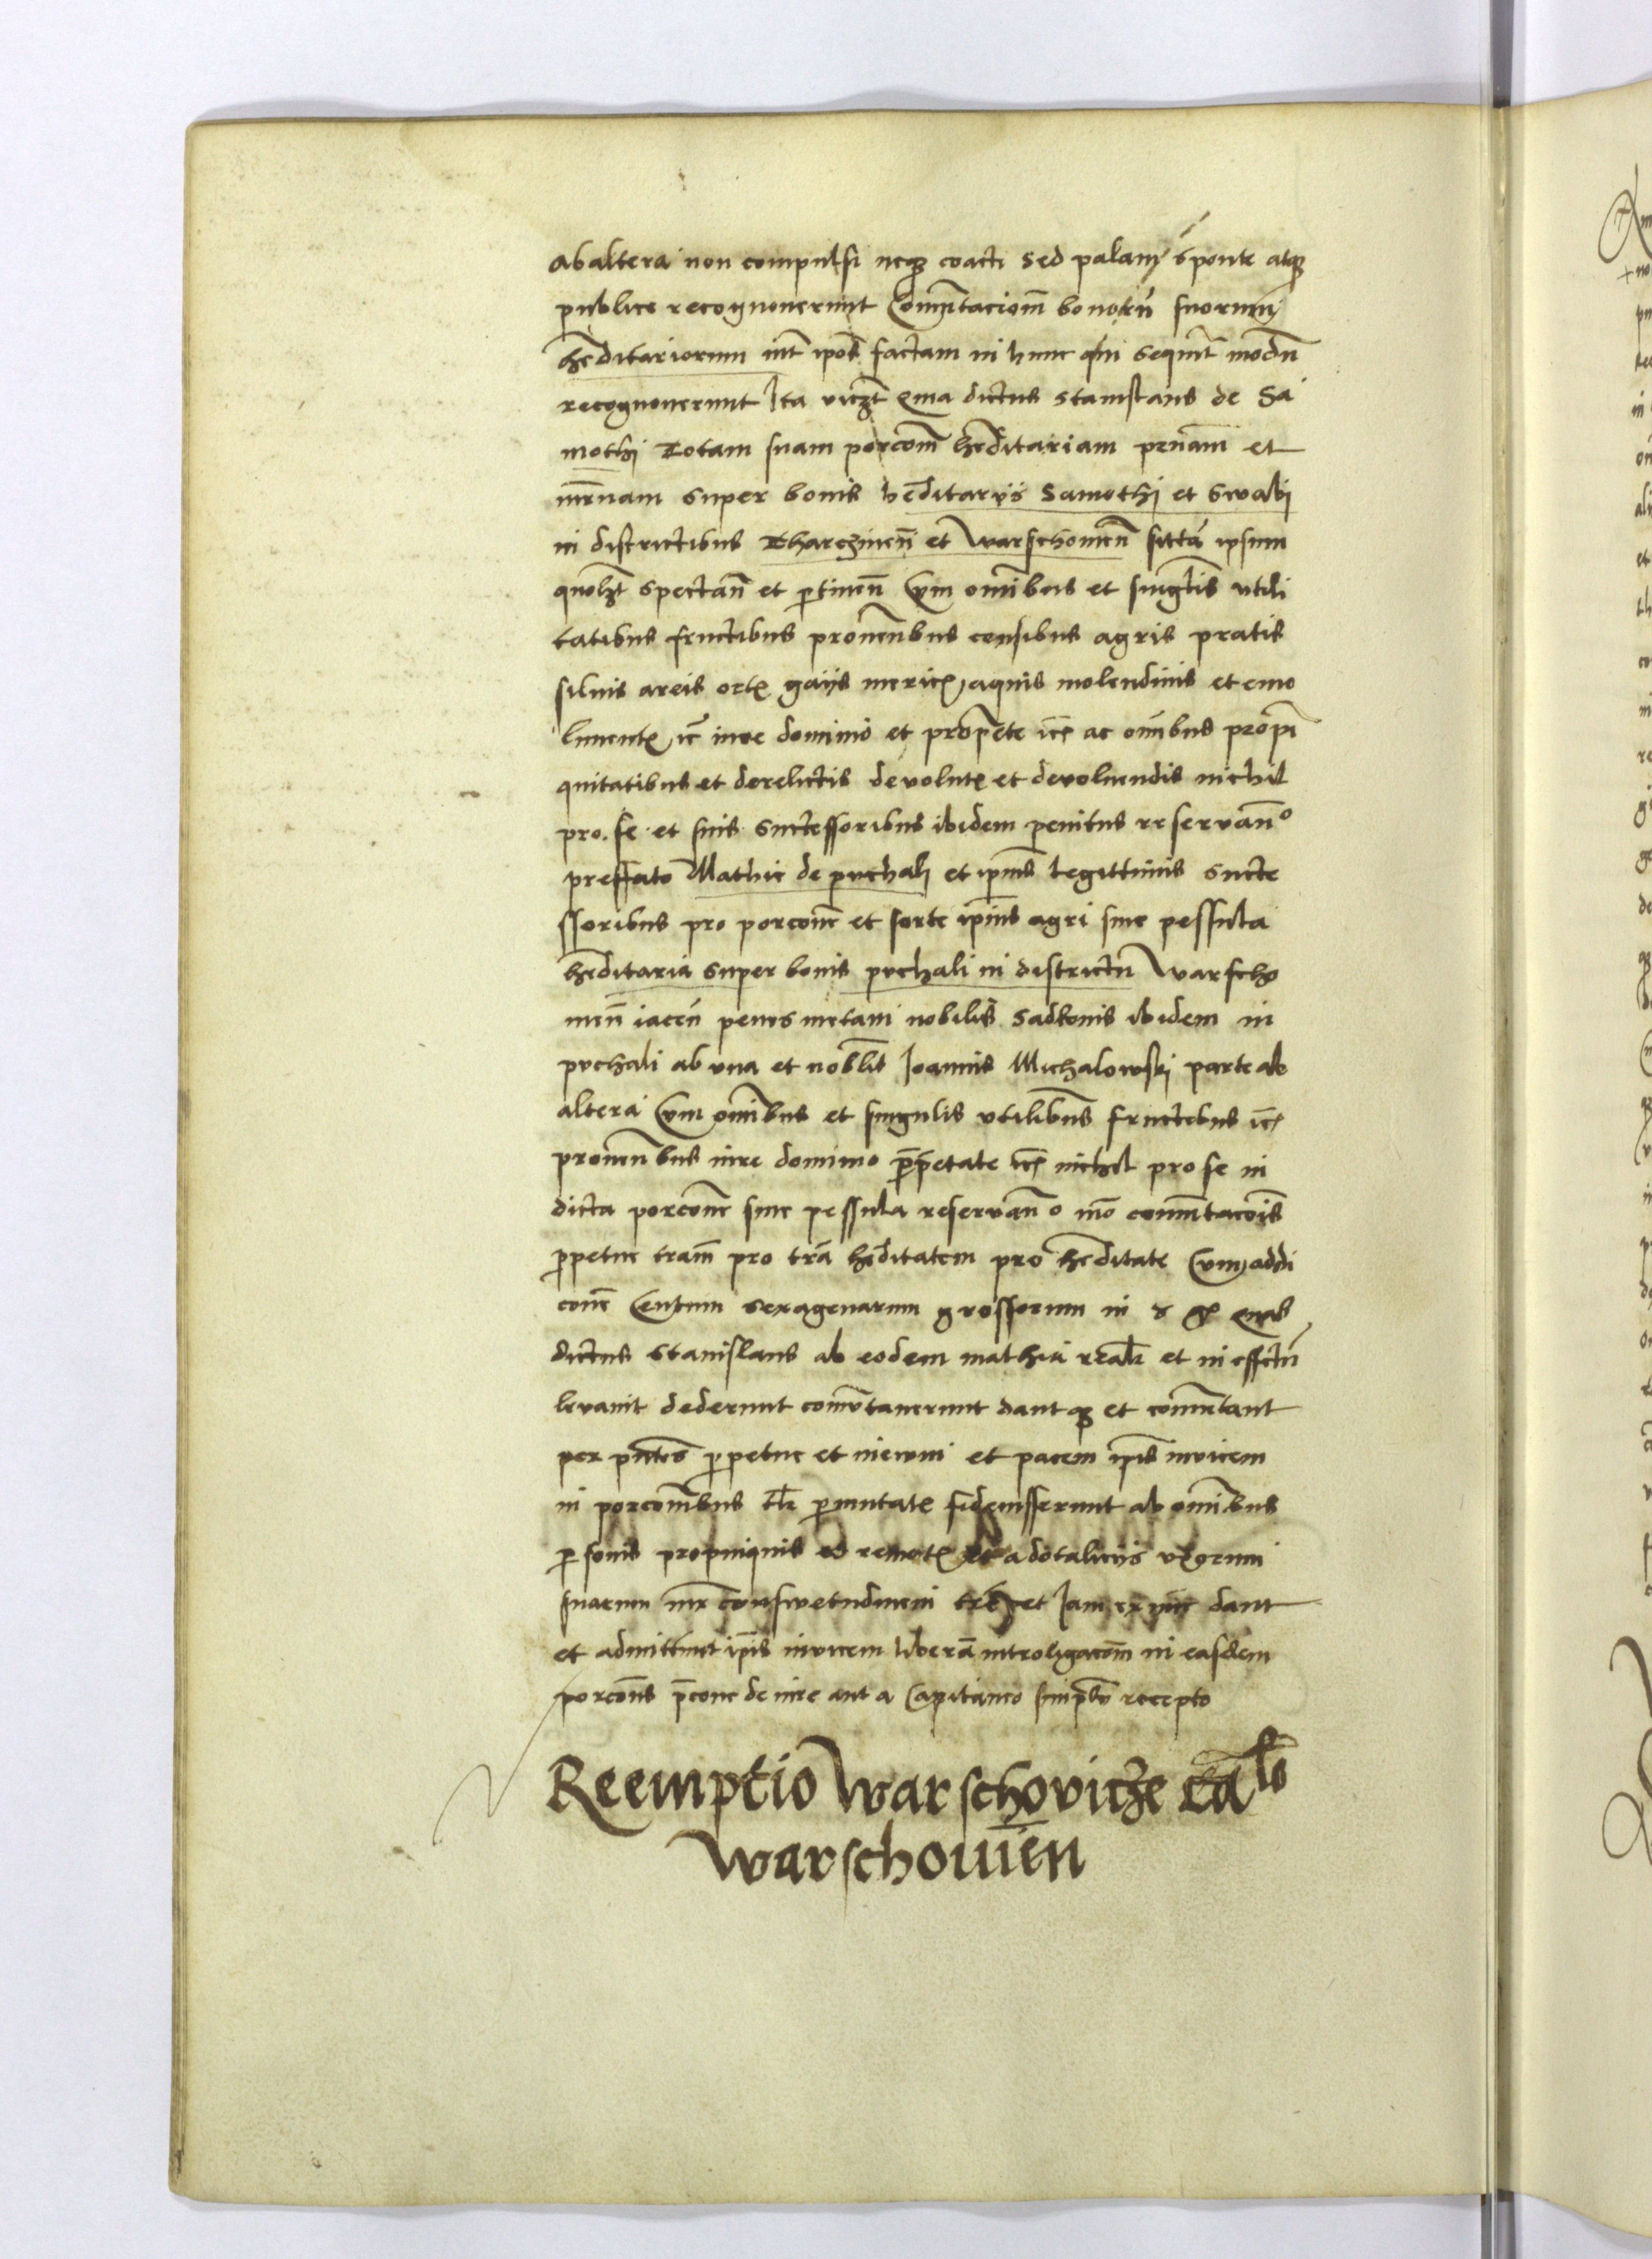 ab altera non compulsi neqꝫ coacti sed palam sponte atqꝫ
publice recognouerunt Comūtacionē bonorū suorum
hēditariorum int̄ ipos̄ factam in hunc qui sequit̄ modū
recognouerunt Ita viczt̄ qma dictus stanislaus de Sa
mothi Totam suam porcōm hēditariam pn̄am et
mn̄nam super bonis hēditarijs Samothi et Swabi
in districtibus Tharczinen̄ et warschouien̄ sitta ipsum
quolꝫt spectan̄ et ptinen̄ Cum om̄ibus et singlis utili
tatibus fructibus prouen̄bus censibus agris pratis
siluis areis ort gaijs meric aquis molendinis et emo
lument ic̄ iure dominio et prop̄ete ic̄ ac om̄ibus propi
quitatibus et derelictis devolut et devoluendis nichil
pro se et suis successoribus ibidem penitus reservan̄o
preffato Mathie de puchali et ipius̄ legittimis succe
ssoribus pro porcōne et sorte ipius̄ agri siue pessula
hēditaria super bonis puchali in districtu warscho
uien̄ iacen̄ penes metam nobilis Sadkonis ibidem in
puchali ab vna et nobl̄is Joannis Michalowski parte ab
altera Cum om̄ibus et singulis utilibus̄ fructibus ic̄
prouen̄bus iure dominio pp̄etate ic̄ nichil pro se in
dicta porcōne siue pessula reservan̄o mō comūtacōis
ppetue tram̄ pro tra hēditatem pro hēditate Cum addi
cōne Centum sexagenarum grossorum in
dictus stanislaus ab eodem mathia realr̄ et in effctū
levauit dederunt comūtauerunt dantqꝫ et comūtant
per pn̄tes ppetue et in ewm et pacem ipis̄ invicem
in porcōnibus tlr̄ pmutat fideiusserunt ab om̄ibus
psonis propinquis et remot et a dotalicijs uxorum
suarum iux̄ conswetudinem tre et Jam ex nūc dant
et admittunt ip̄is invicem liberā introligacōm in easdem
porcōns p̄cone de iure aut a Capitaneo simplr̄ recepto
Reemptio warschovicze ca
warschouien